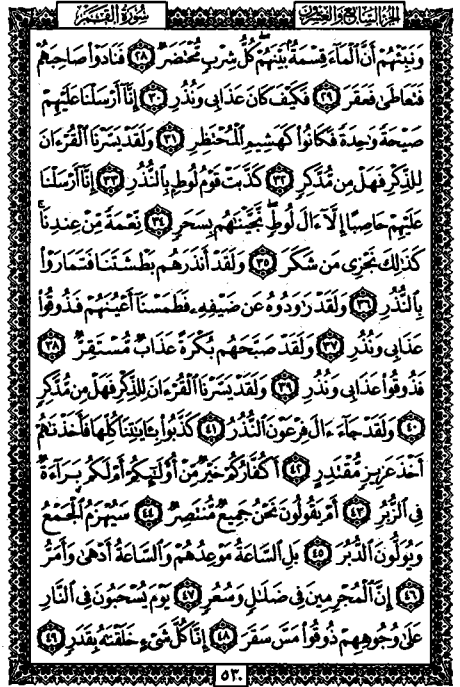 الجزء السابع والعشرون سورة القمر
وَنَبِّئْهُمْ أَنَّ ٱلْمَآءَ قِسْمَةٌۢ بَيْنَهُمْ ۖ كُلُّ شِرْبٍ مُّحْتَضَرٌ ۝٢٨ فَنَادَوْا۟ صَاحِبَهُمْ
فَتَعَاطَىٰ فَعَقَرَ ۝٢٩ فَكَيْفَ كَانَ عَذَابِى وَنُذُرِ ۝٣٠ إِنَّآ أَرْسَلْنَا عَلَيْهِمْ
صَيْحَةً وَٰحِدَةً فَكَانُوا۟ كَهَشِيمِ ٱلْمُحْتَظِرِ ۝٣١ وَلَقَدْ يَسَّرْنَا ٱلْقُرْءَانَ
لِلذِّكْرِ فَهَلْ مِن مُّدَّكِرٍ ۝٣٢ كَذَّبَتْ قَوْمُ لُوطٍۭ بِٱلنُّذُرِ ۝٣٣ إِنَّآ أَرْسَلْنَا
عَلَيْهِمْ حَاصِبًا إِلَّآ ءَالَ لُوطٍ ۖ نَّجَّيْنَٰهُم بِسَحَرٍ ۝٣٤ نِّعْمَةً مِّنْ عِندِنَا ۚ
كَذَٰلِكَ نَجْزِى مَن شَكَرَ ۝٣٥ وَلَقَدْ أَنذَرَهُم بَطْشَتَنَا فَتَمَارَوْا۟
بِٱلنُّذُرِ ۝٣٦ وَلَقَدْ رَٰوَدُوهُ عَن ضَيْفِهِۦ فَطَمَسْنَآ أَعْيُنَهُمْ فَذُوقُوا۟
عَذَابِى وَنُذُرِ ۝٣٧ وَلَقَدْ صَبَّحَهُم بُكْرَةً عَذَابٌ مُّسْتَقِرٌّ ۝٣٨
فَذُوقُوا۟ عَذَابِى وَنُذُرِ ۝٣٩ وَلَقَدْ يَسَّرْنَا ٱلْقُرْءَانَ لِلذِّكْرِ فَهَلْ مِن مُّدَّكِرٍ
۝٤٠ وَلَقَدْ جَآءَ ءَالَ فِرْعَوْنَ ٱلنُّذُرُ ۝٤١ كَذَّبُوا۟ بِـَٔايَٰتِنَا كُلِّهَا فَأَخَذْنَٰهُمْ
أَخْذَ عَزِيزٍ مُّقْتَدِرٍ ۝٤٢ أَكُفَّارُكُمْ خَيْرٌ مِّنْ أُو۟لَٰٓئِكُمْ أَمْ لَكُم بَرَآءَةٌ
فِى ٱلزُّبُرِ ۝٤٣ أَمْ يَقُولُونَ نَحْنُ جَمِيعٌ مُّنتَصِرٌ ۝٤٤ سَيُهْزَمُ ٱلْجَمْعُ
وَيُوَلُّونَ ٱلدُّبُرَ ۝٤٥ بَلِ ٱلسَّاعَةُ مَوْعِدُهُمْ وَٱلسَّاعَةُ أَدْهَىٰ وَأَمَرُّ
۝٤٦ إِنَّ ٱلْمُجْرِمِينَ فِى ضَلَٰلٍ وَسُعُرٍ ۝٤٧ يَوْمَ يُسْحَبُونَ فِى ٱلنَّارِ
عَلَىٰ وُجُوهِهِمْ ذُوقُوا۟ مَسَّ سَقَرَ ۝٤٨ إِنَّا كُلَّ شَىْءٍ خَلَقْنَٰهُ بِقَدَرٍ ۝٤٩
٥٣٠